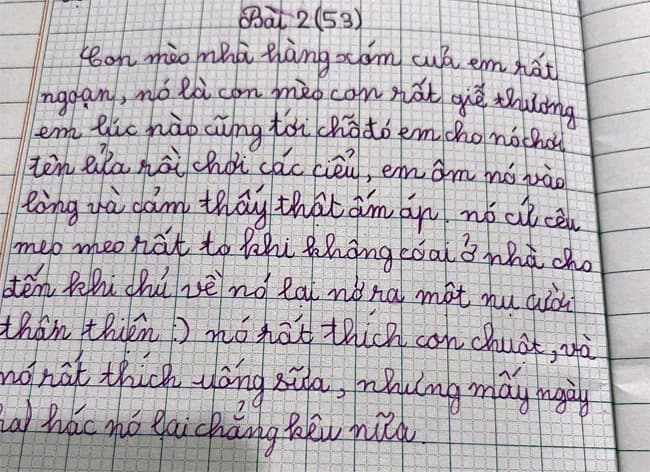 Bài 2 (53)
Con mèo nhà hàng xóm của em rất
ngoan, nó là con mèo con rất giễ thương
em lúc nào cũng tới chỗ đó em cho nó chơi
tên lửa rồi chơi các ciểu, em ôm nó vào
lòng và cảm thấy thật ấm áp. nó cứ cêu
meo meo rất to khi không có ai ở nhà cho
đến khi chủ về nó lại nở ra một nụ cười
thân thiện :) nó rất thích con chuột, và
nó rất thích uống sữa, nhưng mấy ngày
hác nó lại chẳng kêu nữa.